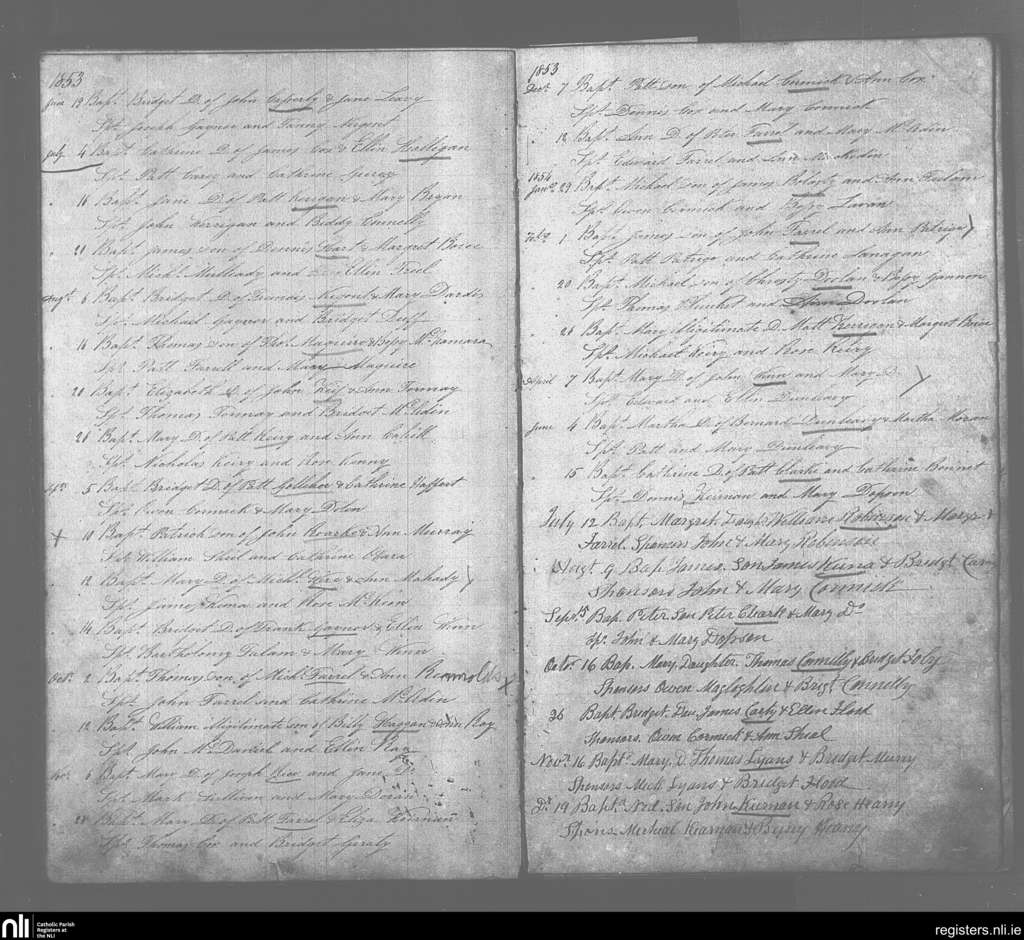 1853
June 19 Bapt. Bridget D. of John & Jane Leavy
Spt. Joseph Gaynor and Fanny Nugent
July 4 Bapt. Catherine D. of James Cox & Ellen Halligan
Spt. Patt Casey and Catherine
16 Bapt. Jane D. of Patt Kerrigan & Mary Began
Spt. John Kerrigan and Biddy Connelly
21 Bapt. James son of Dennis Hart & Margret Boice
Spt. Michl. Mulleady and Ellen Freel
Augt. 6 Bapt. Bridget D. of Francis Nugent & Mary Dardis
Spt. Michael Gaynor and Bridget Duff
16 Bapt. Thomas son of Thos. Maguire & Bessy McNamara
Spt. Patt Farrell and Mary Maguire
20 Bapt. Elizabeth D. of John & Ann Tormay
Spt. Thomas Tormay and Bridget
28 Bapt. Mary D. of Patt Keiry and Ann Cahill
Spt. Nicholas Keiry and Rose Kenny
5 Bapt. Bridget D. of Patt & Catherine Haffort
Spt. Owen Cormick & Mary Dolan
10 Bapt. Patrick son of John Roarke & Ann Murray
Spt. William Shiel and Catherine O'Hara
12 Bapt. Mary D. of Michl. & Ann Mahady
Spt. James and Rose McKeon
14 Bapt. Bridget D. of Frank Gaynor & Ellen
Spt. Bartholomy and Mary
Oct. 2 Bapt. Thomas son of Michl. Farrel & Ann Reynolds X
Spt. John Farrel and Catherine
12 Bapt. William illigitimate son of Billy & Ann Ray
Spt. John McDaniel and Ellen Ray
Nov. 6 Bapt. Mary D. of Joseph Rice and Jane Do.
Spt. Mark Sullivan and Mary
28 Bapt. Mary D. of Patt Farrel & Eliza Kiernan
Spt. Thomas Cox and Bridget Geraty
1853
Decr. 7 Bapt. Patt son of Michael Cormick & Ann Cox
Spt. Dennis Cox and Mary Cormick
18 Bapt. Ann D. of Peter Farrel and Mary
Spt. Edward Farrel and Ann
1854
Jany. 29 Bapt. Michael son of James and Ann
Spt. Owen Cormick and Bessy Lavan
Feby. 1 Bapt. James son of John Farrel and Ann Petrigo
Spt. Patt Petrigo and Catherine Lanagan
20 Bapt. Michael son of Christy Dolan & Bessy Gannon
Spt. Thomas and Doolan
26 Bapt. Mary illigitimate D. Matt Kerrigan & Margret Boice
Spt. Michael Keiry and Rose Keiry
April 7 Bapt. Mary D. of John and Mary D.
Spt. Edward and Ellen Dunleavy
June 4 Bapt. Martha D. of Bernard Dunleavy & Martha Moran
Spt. Patt and Mary Dunleavy
15 Bapt. Catherine D. of Patt Clarke and Catherine Bonnet
Spt. Dennis Keirnan and Mary Depson
July 12 Bapt. Margret, Daugh. William Robinson & Margt.
Farrel. Sponsers John & Mary Robinson
Augt. 9 Bap. James, Son James & Bridgt.
Sponsors John & Mary Cormick
Septr. 15 Bap. Peter Son Peter Cleark & Mary Do
Sp. John & Mary Depson
Octor. 16 Bap. Mary, Daughter. Thomas Connilly & Bridget Foly
Sponsers Owen Magloghlen & Brigt. Connelly
26 Bapt. Bridget. Dau. James Carty & Ellen Flood
Sponsers. Owen Cormick & Ann Sheal
Novr. 16 Bapt. Mary. D. Thomas Lyons & Bridget Murry
Sponsers Mick Lyons & Bridget Flood
Do. 19 Bapt. Ned. Son John Kiernan & Rose Heany
Spons. Micheal & Heany
nli Catholic Parish
Registers at
the NLI
registers.nli.ie